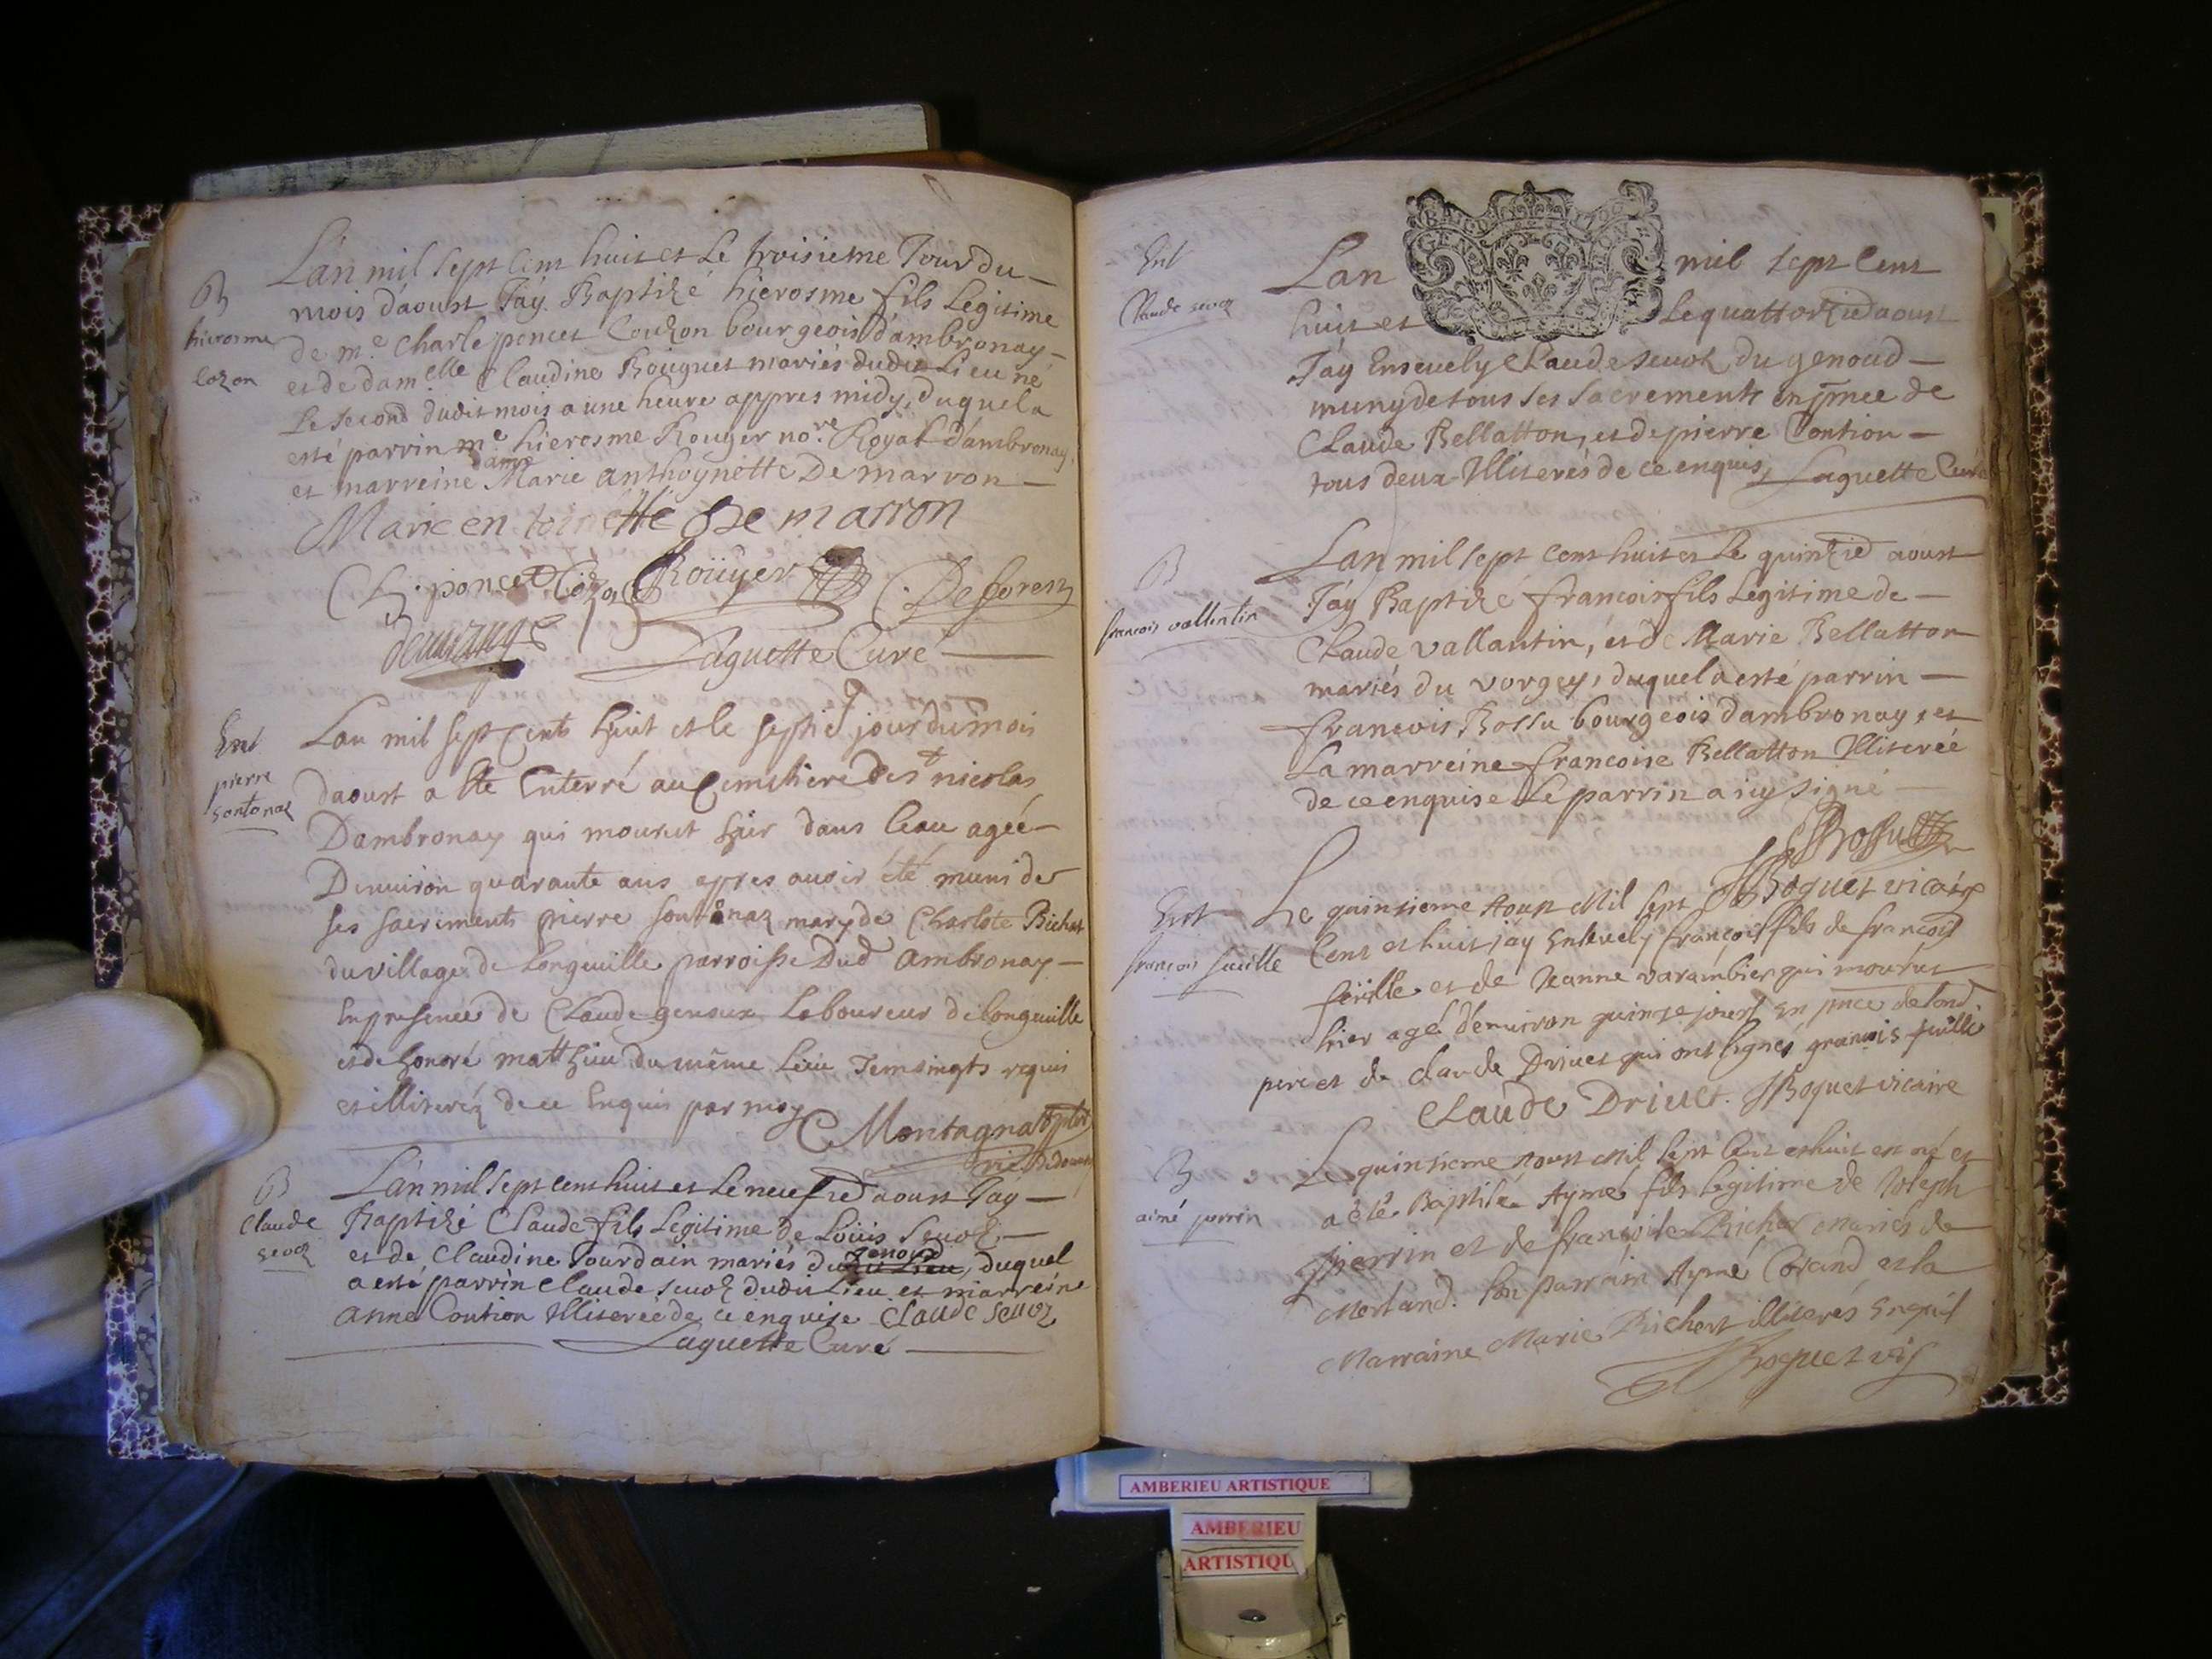 B
hierosme
cozon
Lan mil sept cent huit et Le troisieme Jour du
mois d'aoust J'ay Baptizé hierosme fils Legitime
de m.e Charle poncet Couzon bourgeois d'ambronay
et de dam.elle Claudine Rouguet mariés dudit Lieu né
Le second dudit mois a une heure appres midy, duquel a
esté parrin m.e hierosme Rouyer no.re Royal d'ambronay,
et marreine dame Marie anthoynette De marron
Marie en toinette De marron
Ch. poncet Cozon Rouyer Deforest
Laguette Curé
Ent
pierre
Lan mil sept Cents huit et le septie jour du mois
daoust a ete Enterré au Cimetiere de st nicolas
Dambronay qui mourut hier dans leau agée
Denuiron quarante ans apres auoir été muni de
ses sacrements pierre maryde Charlote Bichat
du village de Longeuille parroisse Dud ambronay
En presence de Claude genoux Laboureur de longeuille
et de honoré matthieu du même Lieu Temoingts requis
et illiteréz de ce Enquis par moy
Montagnat
B
Claude
sevoz
Lan mil sept cens huit et Le neufie d aoust J'ay
Baptizé Claude fils Legitime de Loüis Sevoz
et de Claudine Jourdain mariés du genoud, duquel
a esté parrin Claude sevoz dudit Lieu et marreine
anne Contion Illiterée de ce enquise Claude Sevoz
Laguette Curé
Ent
Claude sevoz
Lan mil sept Cens
huit et Le quattorzie d aoust
J'ay Enseuely Claude sevoz du genoud
muny de tous ses sacrements en pnce de
Claude Bellatton, et de pierre Contion
tous deux Illiterés de ce enquis, Laguette Curé
B
francois vallentin
Lan mil sept cens huit et Le quinzie d aoust
J'ay Baptizé francois fils Legitime de
Claude vallantin, et de Marie Bellatton
mariés du vorgey, duquel a esté parrin
francois Bossu bourgeois dambronay, et
La marreine francoise Bellatton Illiterée
de ce enquise Le parrin a icy signé
Bossu
Boquet vicaire
Ent
francois feuille
Le quinsieme Aoust Mil sept
Cent et huit jay Enseuely françois fils de francois
feüille et de Jeanne varambier qui mourut
hier agé d'enuiron quinze jours en pnce de sond.
pere et de claude Driuet qui ont signés francois feuille
CLaude Driuet. Boquet vicaire
B
aimé perrin
Le quinsieme aoust mil sept Cent et huit est né et
a été Baptisé Aymé fils legitime de Joseph
Pierrin et de francoise Richer mariés de
Morland. son parrain Aymé Corand et la
Marraine Marie Richert illiterés Enquis
Boquet vic
AMBERIEU ARTISTIQUE
AMBERIEU
ARTISTIQU